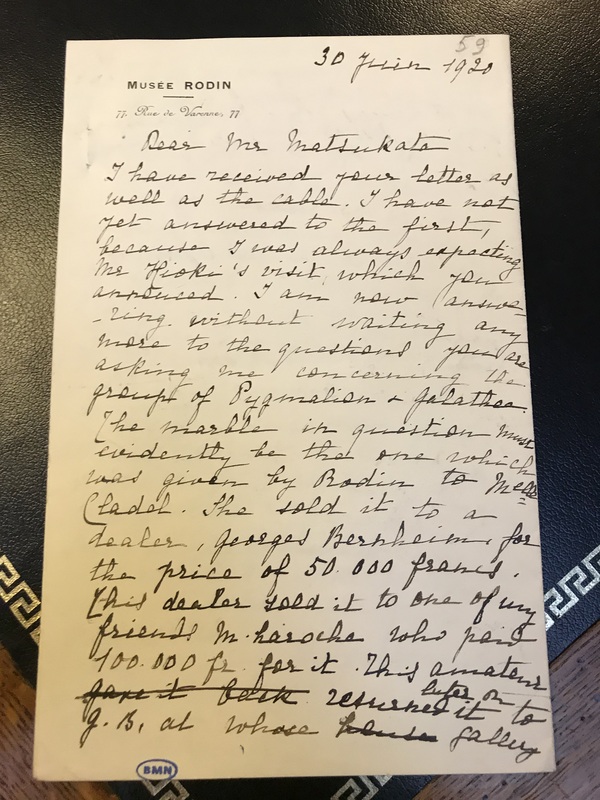 59
30 Juin 1920
MUSÉE RODIN
77, Rue de Varenne, 77
Dear Mr Matsukata
I have received your letter as
well as the cable. I have not
yet answered to the first,
because I was always expecting
Mr Hioki's visit, which you
announced. I am now answe-
-ring without waiting any
more to the questions you are
asking me concerning the
group of Pygmalion & Galathea.
The marble in question must
evidently be the one which
was given by Rodin to Melle
Cladel. She sold it to a
dealer, Georges Bernheim, for
the price of 50.000 francs.
This dealer sold it to one of my
friends M. Laroche who paid
100.000 fr. for it. This amateur
gave it back returned it later on to
G. B. at whose house gallery
BMN